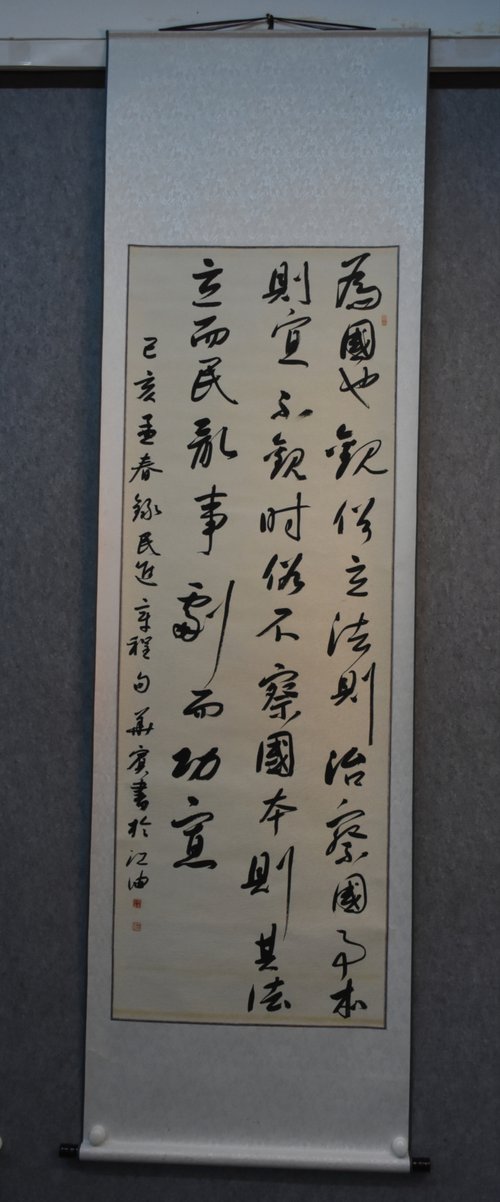 為國也觀俗立法則治察國事本
則宜不觀时俗不察國本則其法
立而民亂事劇而功寡
己亥孟春錄民章程句華賓書於江油